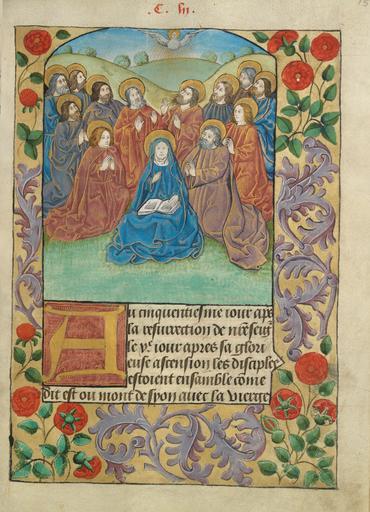 C. lii
Au cinquentiesme iour apres
la resurection de nr̄e seigr̄
le xe iour apres sa glori
euse ascension les disciples
estoient ensamble cōme
dit est ou mont de syon auec la vierge